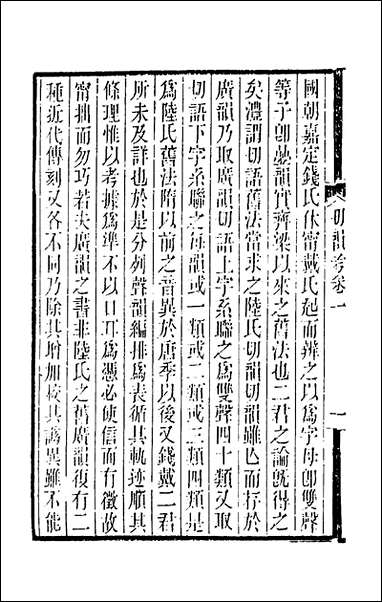 國朝嘉定錢氏休甯戴氏起而辨之以爲字母卽雙聲
等子卽疊韻實齊梁以來之舊法也二君之論旣得之
矣澧謂切語舊法當求之陸氏切韻切韻雖亡而存於
廣韻乃取廣韻切語上字系聯之爲雙聲四十類又取
切語下字系聯之每韻或一類或二類或三類四類是
爲陸氏舊法隋以前之音異於唐季以後又錢戴二君
所未及詳也於是分列聲韻編排爲表循其軌迹順其
條理惟以考據爲準不以口耳爲憑必使信而有徵故
甯拙而勿巧若夫廣韻之書非陸氏之舊廣韻復有二
種近代傳刻又各不同乃除其增加校其譌異雖不能
切韻考卷一
一